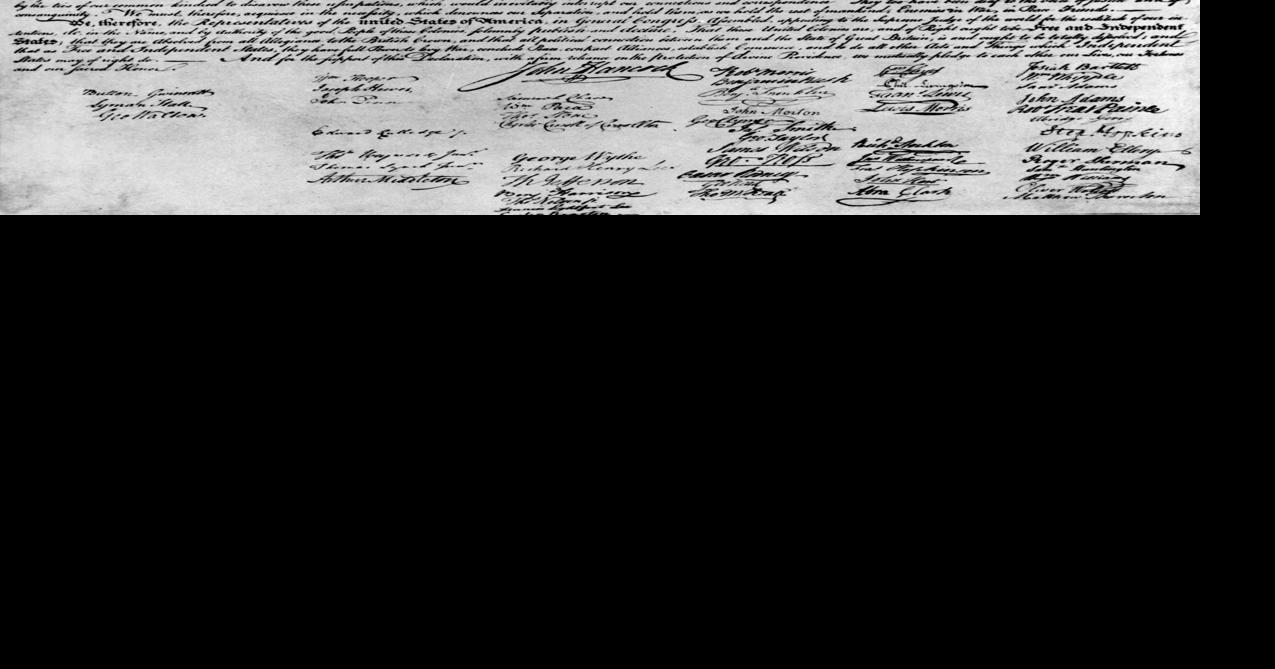 We must, therefore, acquiesce in the necessity, which denounces our Separation, and hold them, as we hold the rest of mankind, Enemies in War, in Peace Friends.
We, therefore, the Representatives of the united States of America, in General Congress, Assembled, appealing to the Supreme Judge of the world for the rectitude of our in
tentions, do, in the Name, and by authority of the good People of these Colonies, solemnly publish and declare, That these United Colonies are, and of Right ought to be Free and Independent
States; that they are Absolved from all Allegiance to the British Crown, and that all political connection between them and the State of Great Britain, is and ought to be totally dissolved; and
that as Free and Independent States, they have full Power to levy War, conclude Peace, contract Alliances, establish Commerce, and to do all other Acts and Things which Independent
States may of right do. And for the support of this Declaration, with a firm reliance on the protection of divine Providence, we mutually pledge to each other our Lives, our Fortunes
and our sacred Honor.
Button Gwinnett
Lyman Hall
Geo Walton.
Wm Hooper
Joseph Hewes,
John Penn
Edward Rutledge /.
Thos Heyward Junr.
Thomas Lynch Junr.
Arthur Middleton
John Hancock
Samuel Chase
Wm Paca
Thos Stone
Charles Carroll of Carrollton
George Wythe
Richard Henry Lee
Th Jefferson
Benj Harrison
Thos Nelson jr.
Francis Lightfoot Lee
Robt Morris
Benjamin Rush
Benj. Franklin
John Morton
Geo Clymer
Jas. Smith
Geo. Taylor
James Wilson
Geo. Ross
Caesar Rodney
Geo Read
Tho M:Kean
Wm Floyd
Phil. Livingston
Frans. Lewis
Lewis Morris
Richd. Stockton
Jno Witherspoon
Fras. Hopkinson
John Hart
Abra Clark
Josiah Bartlett
Wm Whipple
Saml Adams
John Adams
Robt Treat Paine
Elbridge Gerry
Step. Hopkins
William Ellery
Roger Sherman
Saml Huntington
Wm Williams
Oliver Wolcott
Matthew Thornton